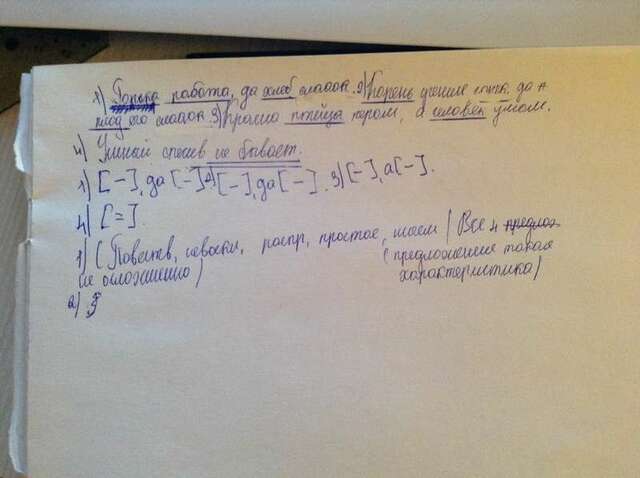 1) Горька работа, да хлеб сладок. 2) Корень учения горек, да
плод его сладок 3) Красна птица пером, а человек умом.
4) Умный спесив не бывает.
1) [-], да [-] 2) [-], да [-]. 3) [-], а [-].
4) [=].
1) (Повеств, невоскл, распр, простое, | Все 4 предлож
не осложненно) (предложения такая
характеристика)
2)